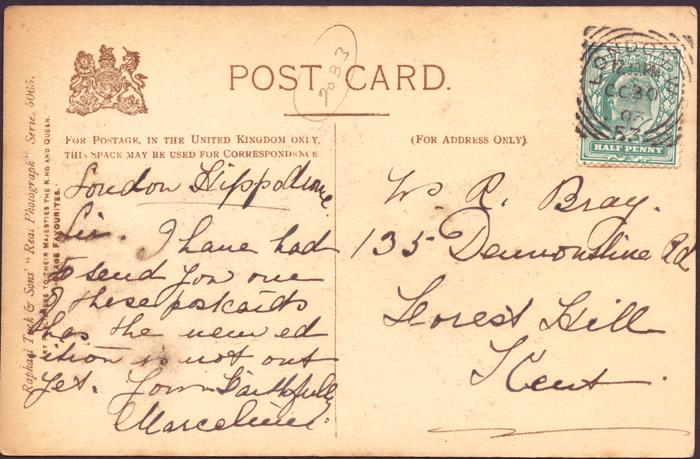 POST CARD.
2033
LONDON
OC 30
03
53
HALF PENNY
FOR POSTAGE, IN THE UNITED KINGDOM ONLY,
THIS SPACE MAY BE USED FOR CORRESPONDENCE
(FOR ADDRESS ONLY).
London Hippodrome
Sir. I have had
to send you one
of these postcards
has the new ed
ition is not out
yet. Yours Faithfully
Marceline.
R. Bray.
135 Devonshire Rd
Forest Hill
Kent
Raphael Tuck & Sons' "Real Photograph" Series 5065.
TO THEIR MAJESTIES THE KING AND QUEEN.
FAVOURITES.